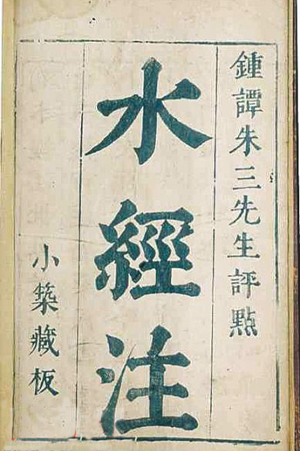 鍾譚朱三先生評點
水經注
小築藏板